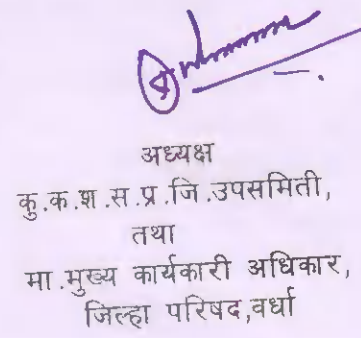 अध्यक्ष
कु.क.श.स.प्र.जि.उपसमिती,
तथा
मा.मुख्य कार्यकारी अधिकार,
जिल्हा परिषद,वर्धा